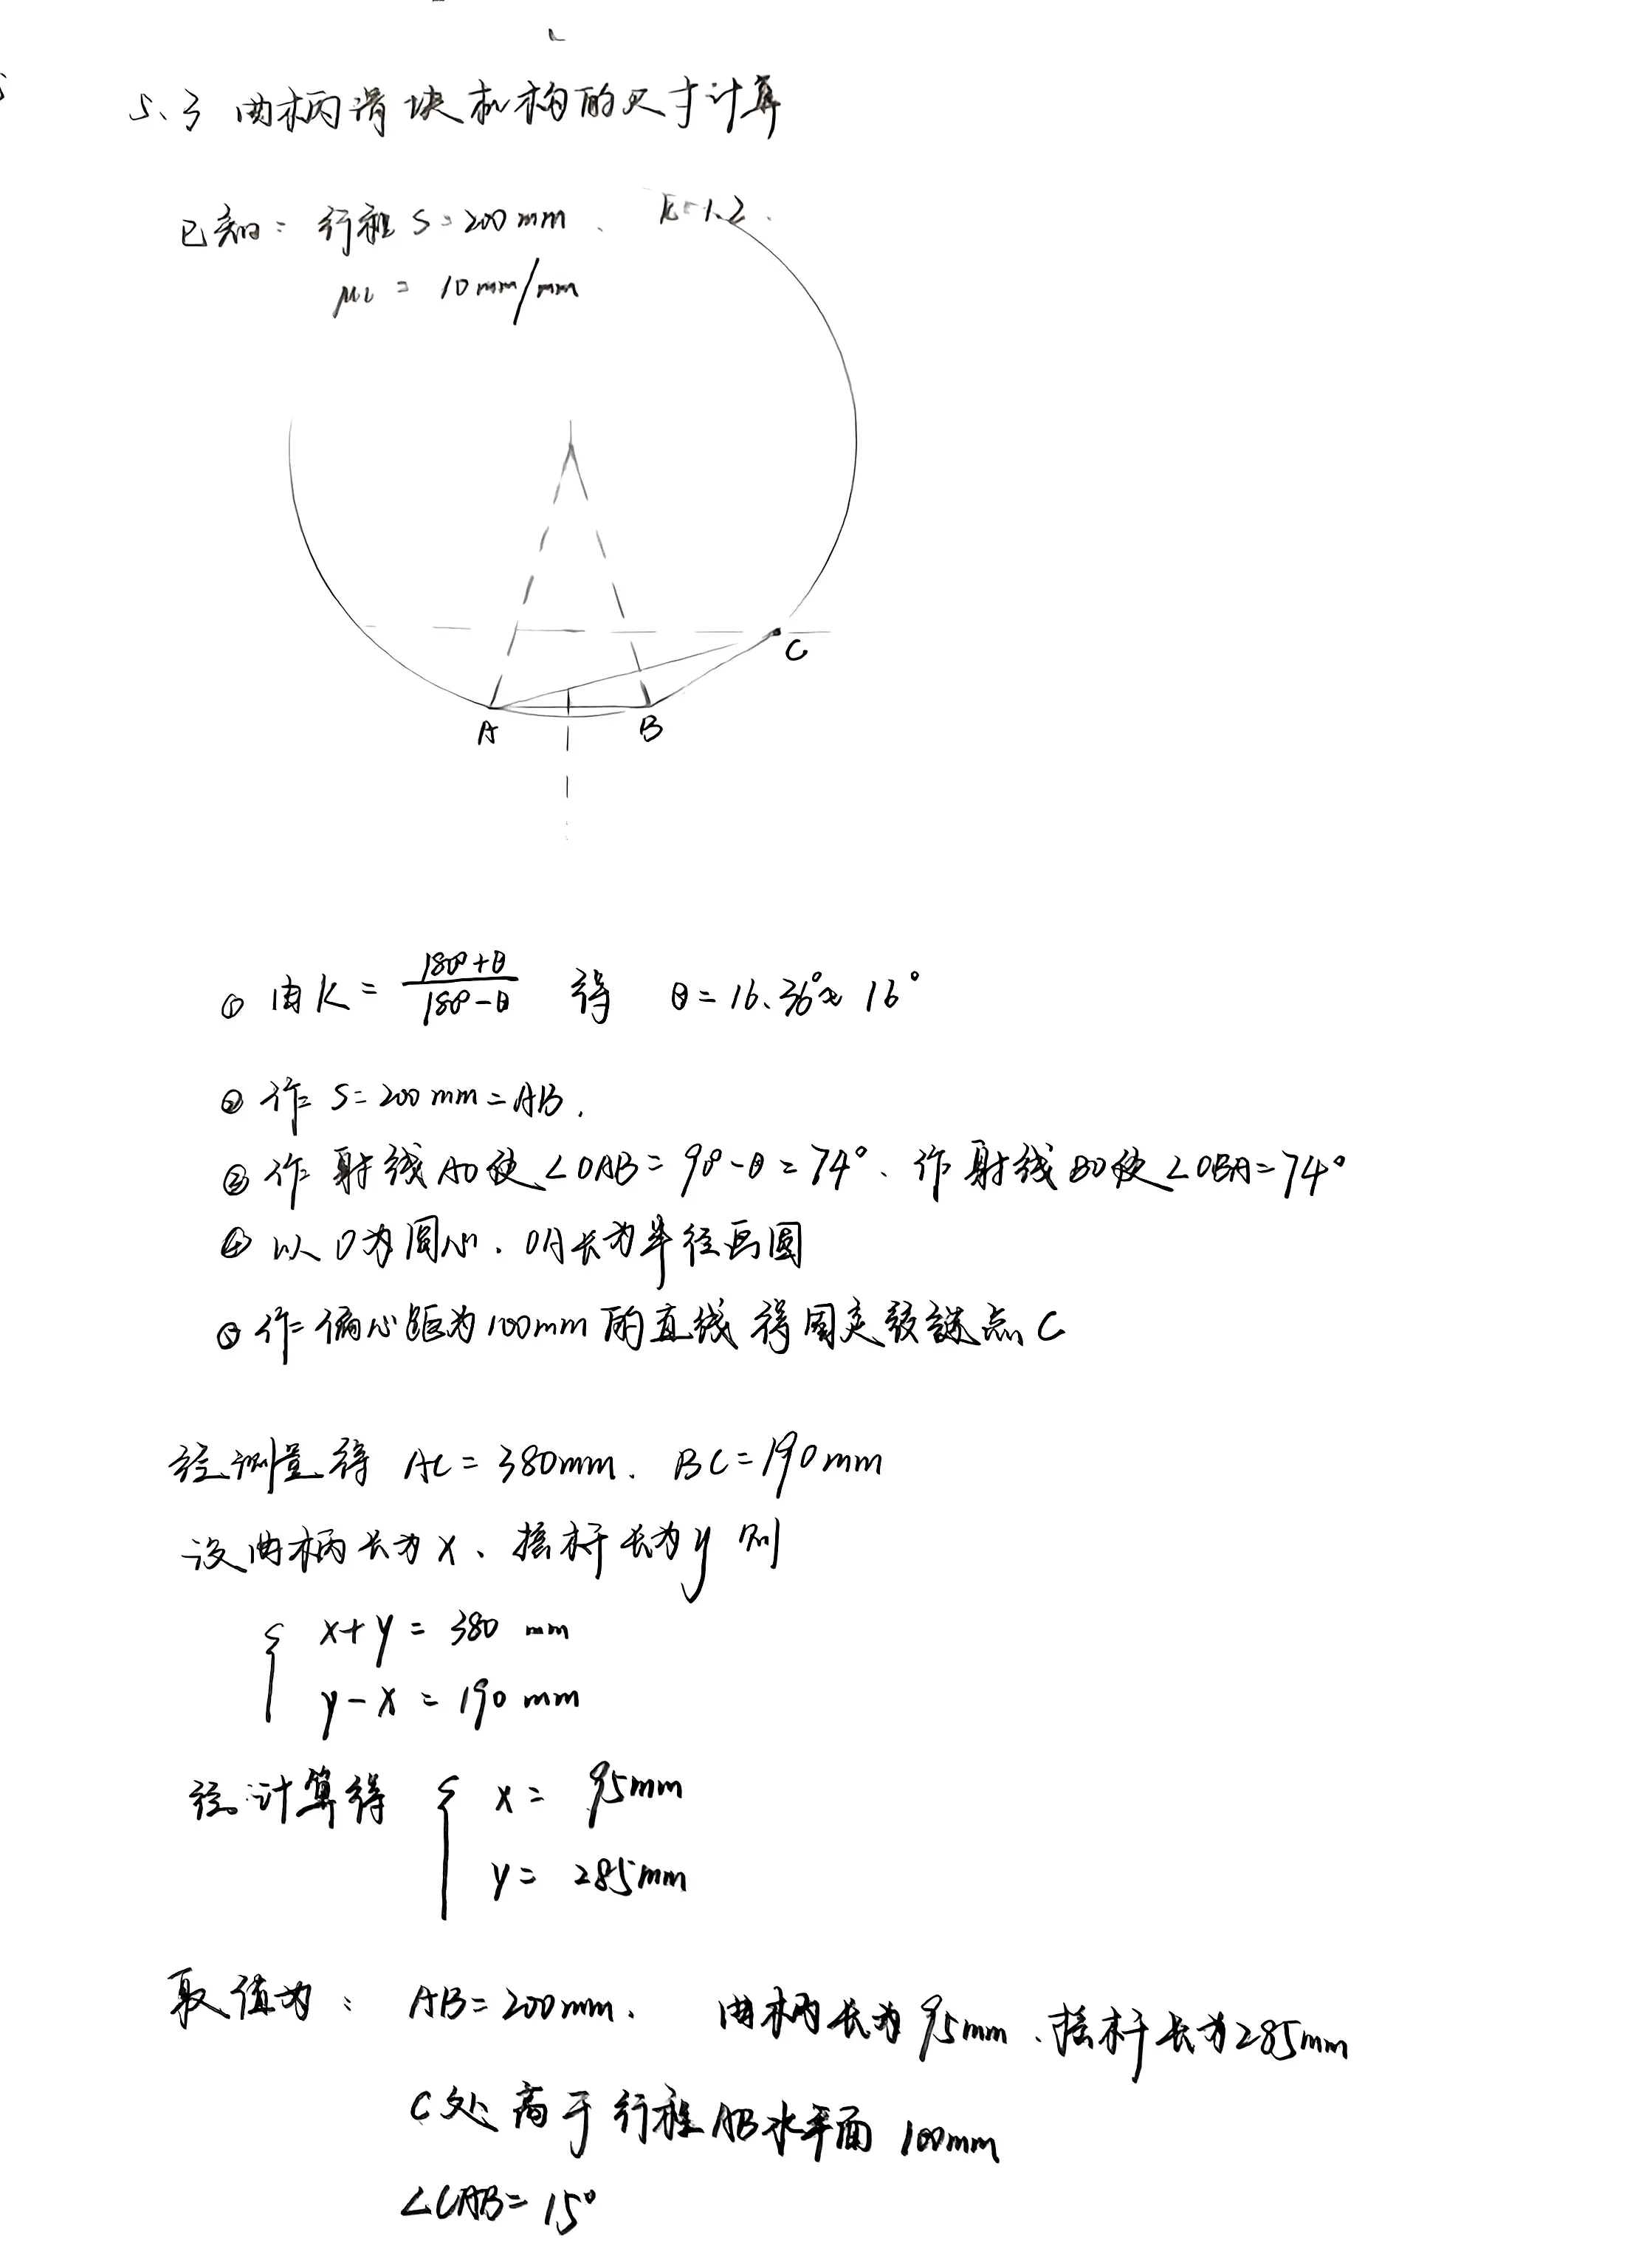 5.3 曲柄滑块机构的尺寸计算
已知: 行程 S=200mm、 K=1.2.
μL = 10mm/mm
C
A B
① 由 K = (180°+θ)/(180°-θ) 得 θ=16.36°≈16°
② 作 S=200mm=AB.
③ 作射线AO使∠OAB=90°-θ=74°、作射线BO使∠OBA=74°
④ 以O为圆心、OA长为半径画圆
⑤ 作偏心距为100mm的直线得固定铰链点C
经测量得 AC=380mm. BC=190mm
设曲柄长为x、摇杆长为y 则
x+y = 380 mm
y-x = 190 mm
经计算得 x= 95mm
y= 285mm
取值为: AB=200mm. 曲柄长为95mm、摇杆长为285mm
C处高于行程AB水平面100mm
∠CAB=15°